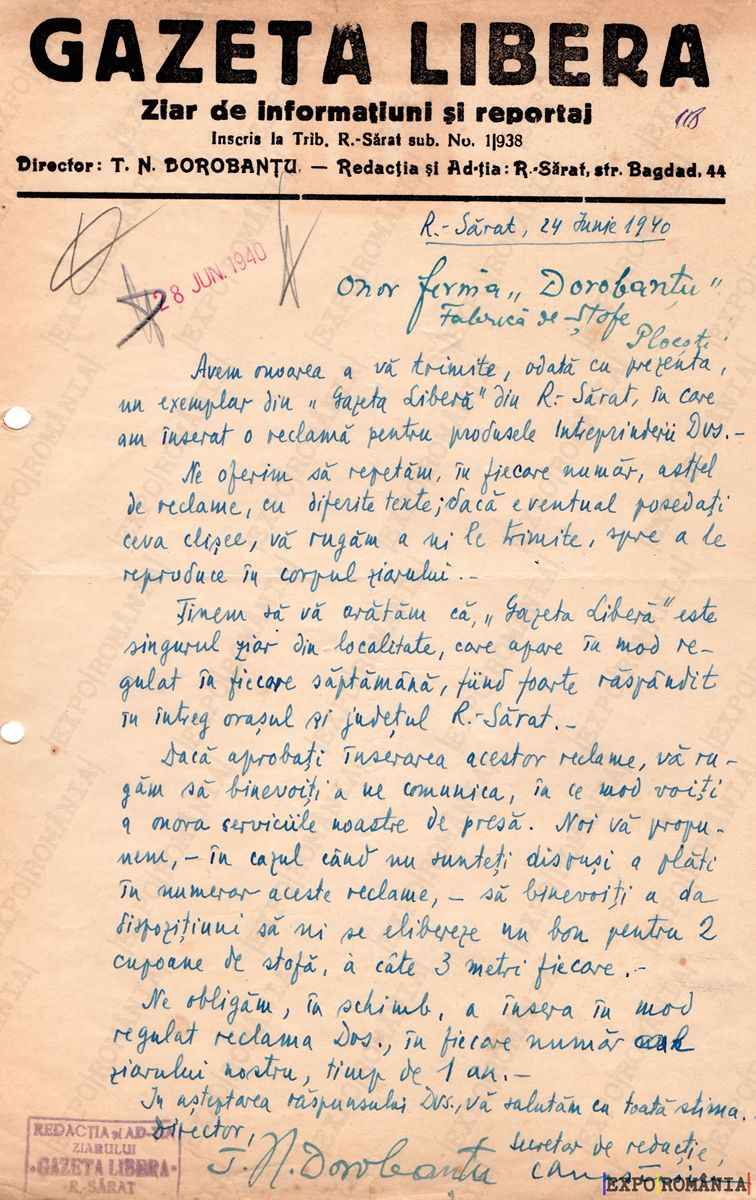 GAZETA LIBERA
Ziar de informațiuni și reportaj
118
Inscris la Trib. R.-Sărat sub. No. 1|938
Director: T. N. DOROBANȚU. — Redacția și Ad-ția: R.-Sărat, str. Bagdad, 44
R.-Sărat, 24 Iunie 1940
28 JUN. 1940
Onor firma „Dorobanțu"
Fabrică de Ștofe
Ploești
Avem onoarea a vă trimite, odată cu prezenta,
un exemplar din „Gazeta Liberă" din R.-Sărat, în care
am înserat o reclamă pentru produsele Intreprinderii Dvs.-
Ne oferim să repetăm, în fiecare număr, astfel
de reclame, cu diferite texte; dacă eventual posedați
ceva clișee, vă rugăm a ni le trimite, spre a le
reproduce în corpul ziarului.-
Ținem să vă arătăm că, „Gazeta Liberă" este
singurul ziar din localitate, care apare în mod re-
gulat în fiecare săptămână, fiind foarte răspândit
în întreg orașul și județul R.-Sărat.-
Dacă aprobați înserarea acestor reclame, vă ru-
găm să binevoiți a ne comunica, în ce mod voiți
a onora serviciile noastre de presă. Noi vă propu-
nem, - în cazul când nu sunteți dispuși a plăti
în numerar aceste reclame, - să binevoiți a da
dispozițiuni să ni se elibereze un bon pentru 2
cupoane de stofă, à câte 3 metri fiecare.-
Ne obligăm, în schimb, a însera în mod
regulat reclama Dvs., în fiecare număr al
ziarului nostru, timp de 1 an.-
In așteptarea răspunsului Dvs., vă salutăm cu toată stima.
Director,
Secretar de redacție,
T. N. Dorobanțu
REDACȚIA și AD-ȚIA
ZIARULUI
«GAZETA LIBERA»
R.-SĂRAT
EXPO ROMÂNIA